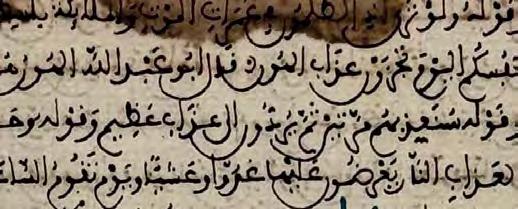 وقوله ولو ترى إذ الظلمون في غمرات الموت والمليكة باسطوا
نفسكم اليوم تجزون عذاب الهون قال ابو عبد الله الهون هو
وقوله سنعذبهم مرتين ثم يردون الى عذاب عظيم وقوله وحا
عذاب النار يعرضون عليها غدوا وعشيا ويوم تقوم الساعة